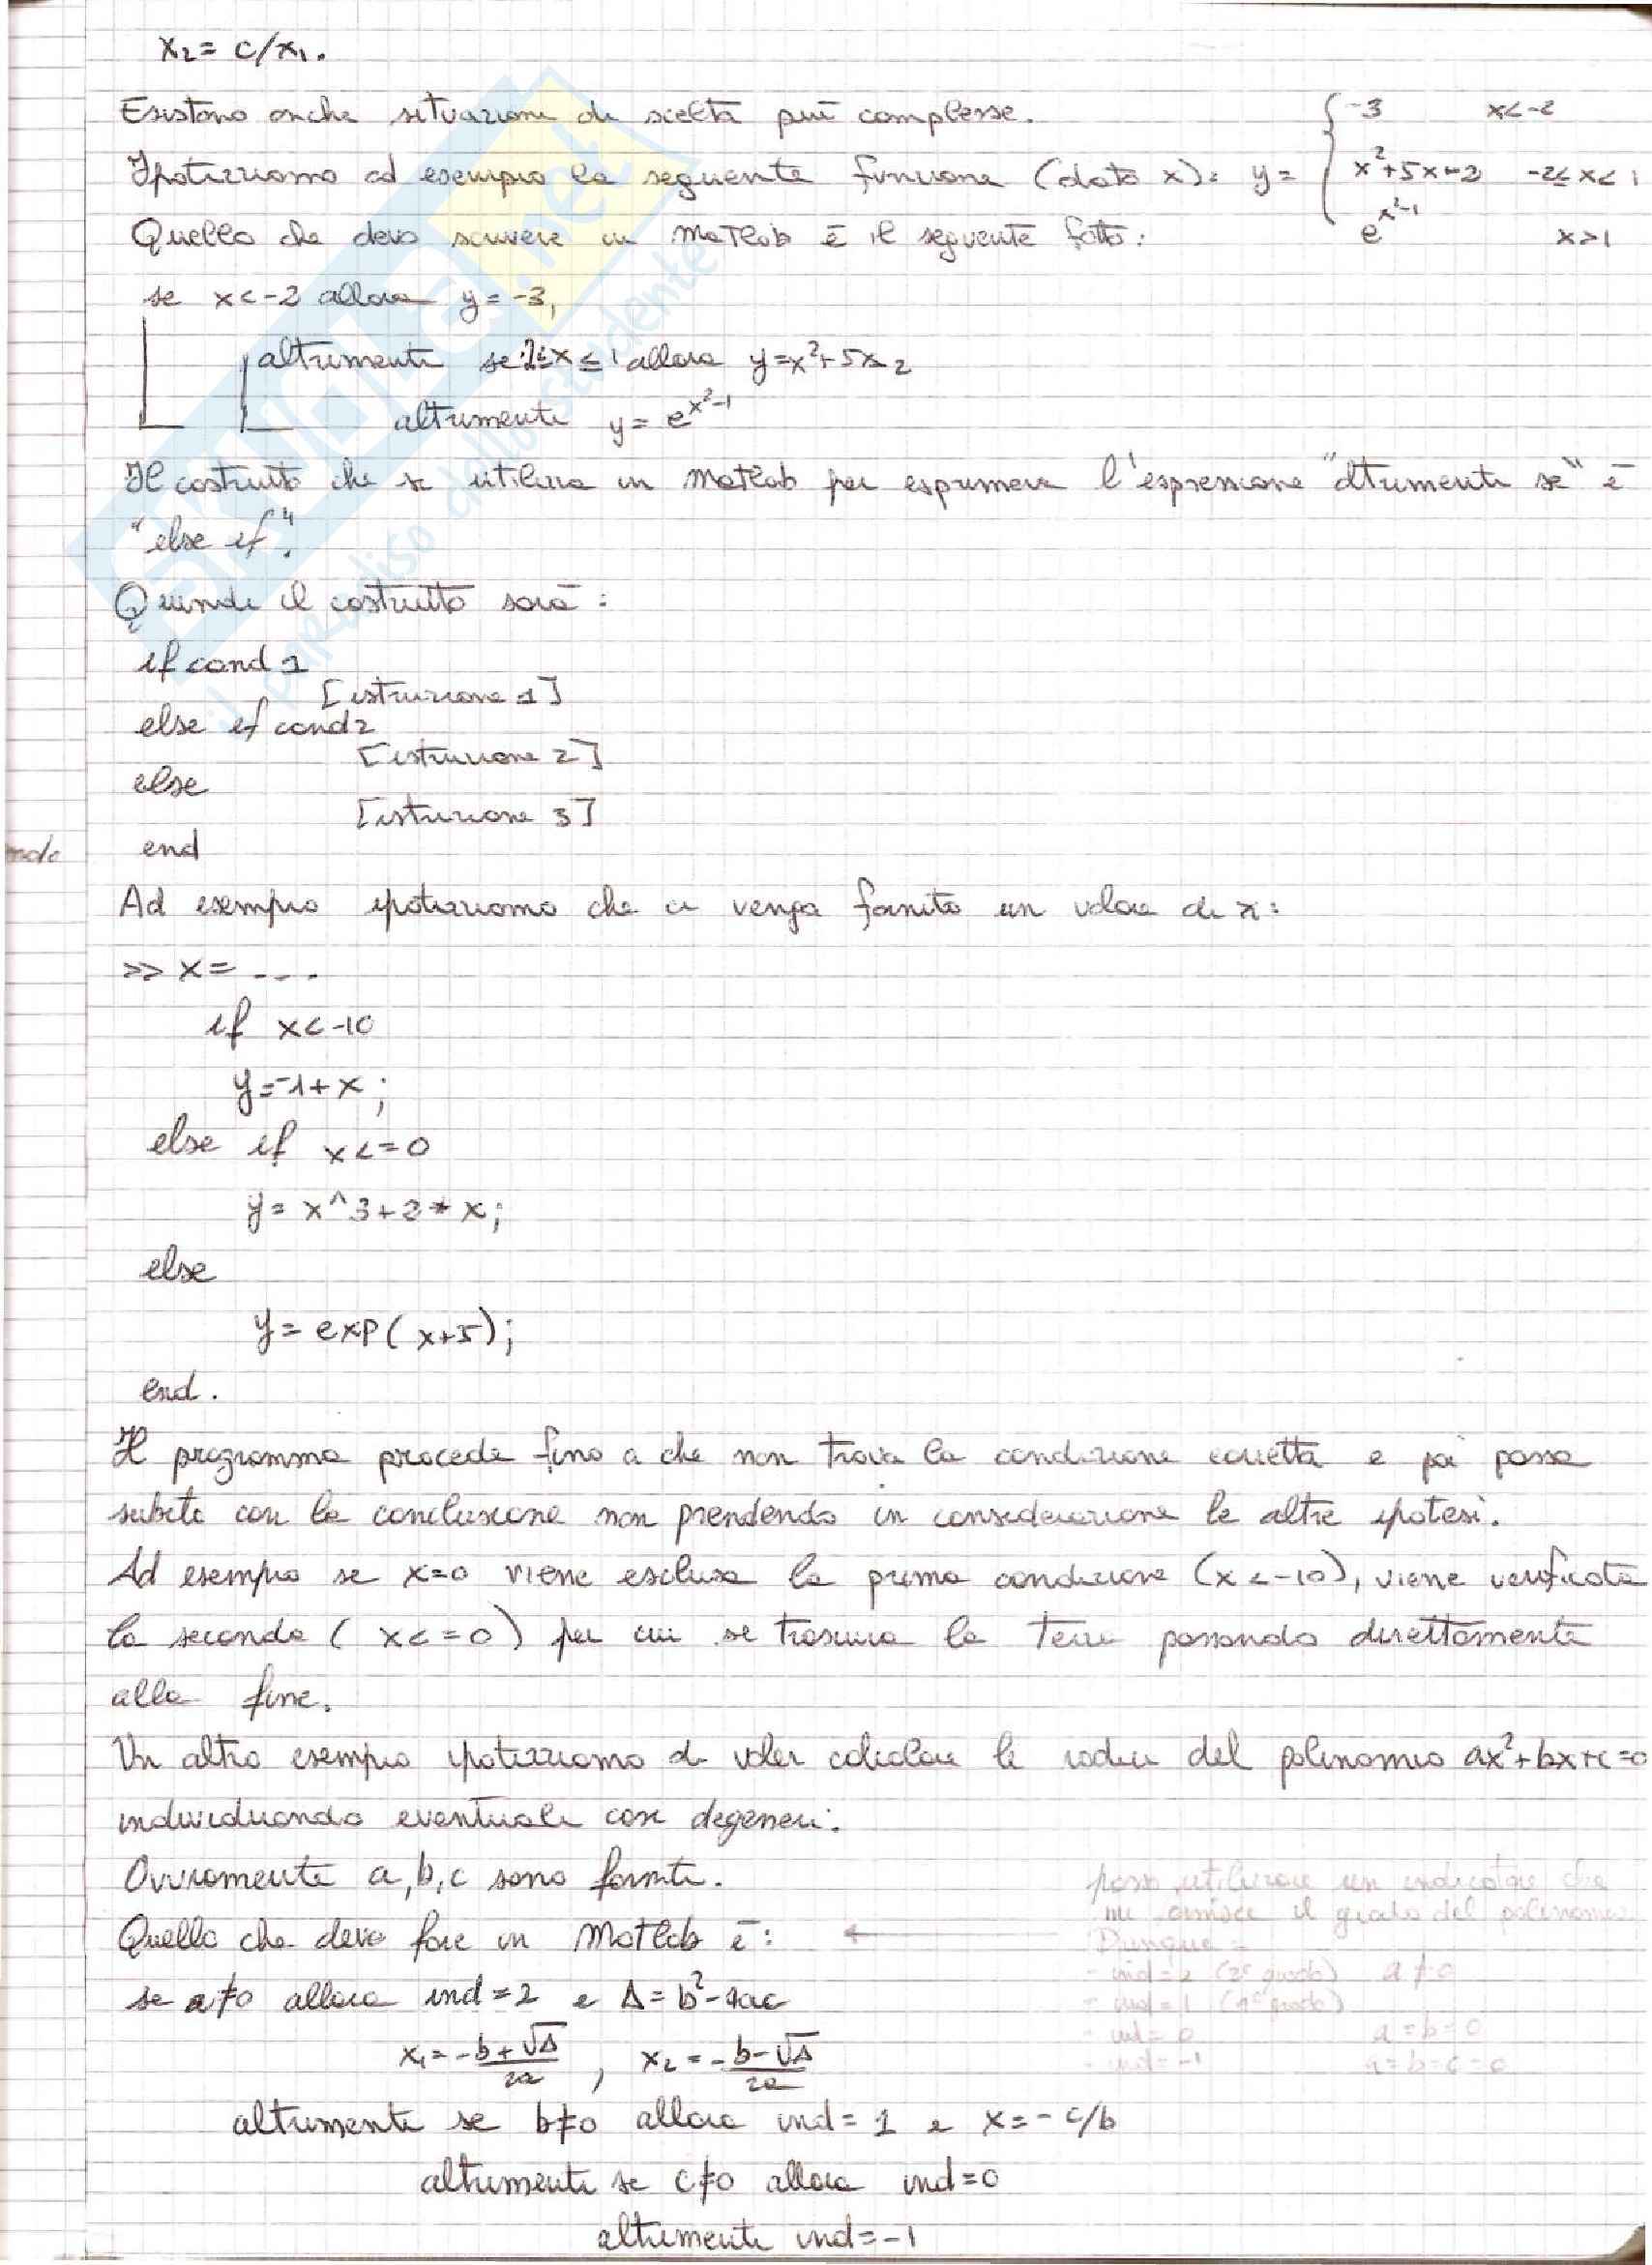 x₂ = c/x₁.
Esistono anche situazioni di scelta più complesse.
Ipotizziamo ad esempio la seguente funzione (dato x): y = { -3 x<-2
x²+5x-2 -2≤x<1
e^(x²-1) x>1
Quello che devo scrivere in Matlab è il seguente fatto:
se x<-2 allora y=-3,
altrimenti se -2≤x≤1 allora y=x²+5x-2
altrimenti y=e^(x²-1)
Il costrutto che si utilizza in Matlab per esprimere l'espressione "altrimenti se" è
"else if".
Quindi il costrutto sarà:
if cond 1
[istruzione 1]
else if cond 2
[istruzione 2]
else
[istruzione 3]
end
Ad esempio ipotizziamo che ci venga fornito un valore di x:
>> x = ....
if x<-10
y=-1+x;
else if x<=0
y=x^3+2*x;
else
y=exp(x+5);
end.
Il programma procede fino a che non trova la condizione corretta e poi passa
subito con la conclusione non prendendo in considerazione le altre ipotesi.
Ad esempio se x=0 viene esclusa la prima condizione (x<-10), viene verificata
la seconda (x<=0) per cui si trascura la terza passando direttamente
alla fine.
Un altro esempio ipotizziamo di voler calcolare le radici del polinomio ax²+bx+c=0
individuando eventuali casi degeneri.
Ovviamente a,b,c sono forniti.
Quello che devo fare in Matlab è: ←
posso utilizzare un indicatore che
mi fornisce il grado del polinomio
Dunque =
- ind=2 (2° grado) a≠0
- ind=1 (1° grado)
- ind=0 a=b=0
- ind=-1 a=b=c=0
se a≠0 allora ind=2 e Δ=b²-4ac
x₁ = (-b+√Δ)/2a , x₂ = (-b-√Δ)/2a
altrimenti se b≠0 allora ind=1 e x=-c/b
altrimenti se c≠0 allora ind=0
altrimenti ind=-1
skuola.net
il paradiso dello studente